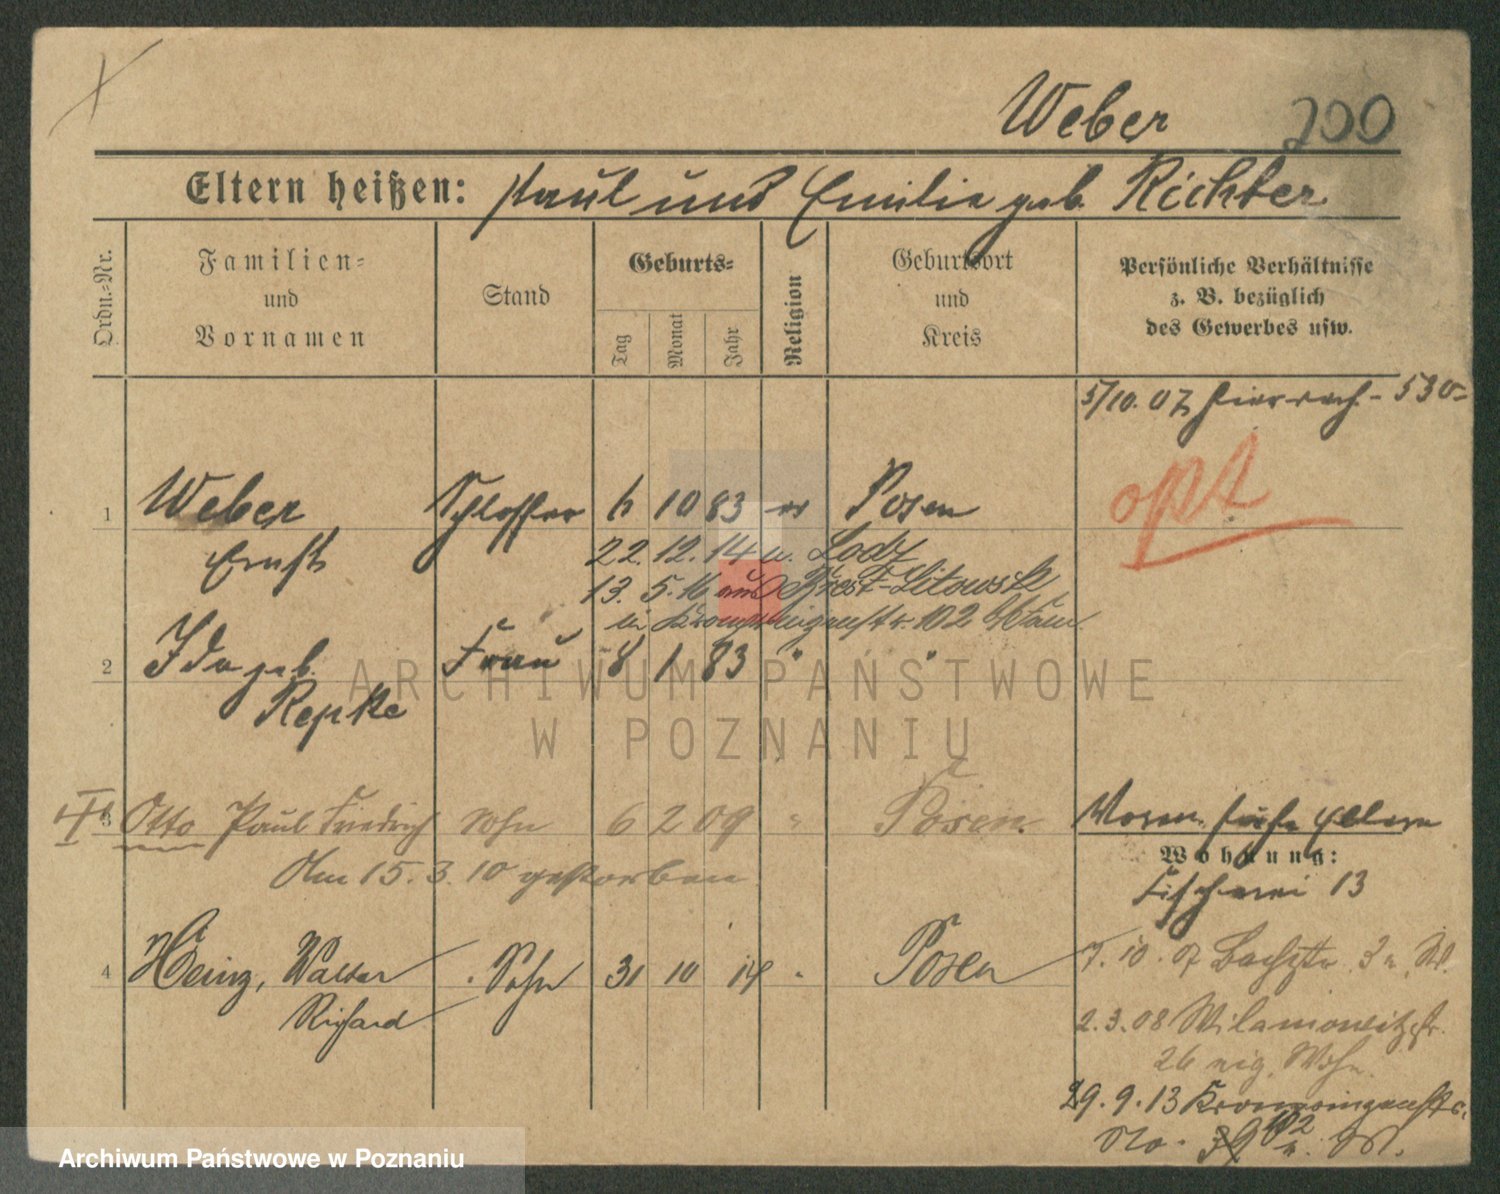 Weber 200
Eltern heißen: Paul und Emilie geb. Richter
Ordn.-Nr.
Familien=
und
Vornamen
Stand
Geburts=
Tag
Monat
Jahr
Religion
Geburtsort
und
Kreis
Persönliche Verhältnisse
z. B. bezüglich
des Gewerbes usw.
5/10. 07 530-
opt
1 Weber Schlosser 6 10 83 ev Posen
Ernst
22. 12. 14 n. Lodz
13. 5. 16 aus Brest-Litowsk
in Kronprinzenstr. 102
2 Ida geb. Frau 8 1 83 " "
Repke
3 Otto Paul Friedrich Sohn 6 2 09 " Posen.
Am 15. 3. 10 gestorben
Eltern
Wohnung:
Fischerei 13
4 Heinz, Walter Sohn 31 10 14 " Posen
Richard
7. 10. 07 Bachstr. 3
2. 3. 08 Wilamowitzstr.
26 eig. Wohn.
29. 9. 13 Kronprinzenstr.
No. 39 102
ARCHIWUM PAŃSTWOWE
W POZNANIU
Archiwum Państwowe w Poznaniu